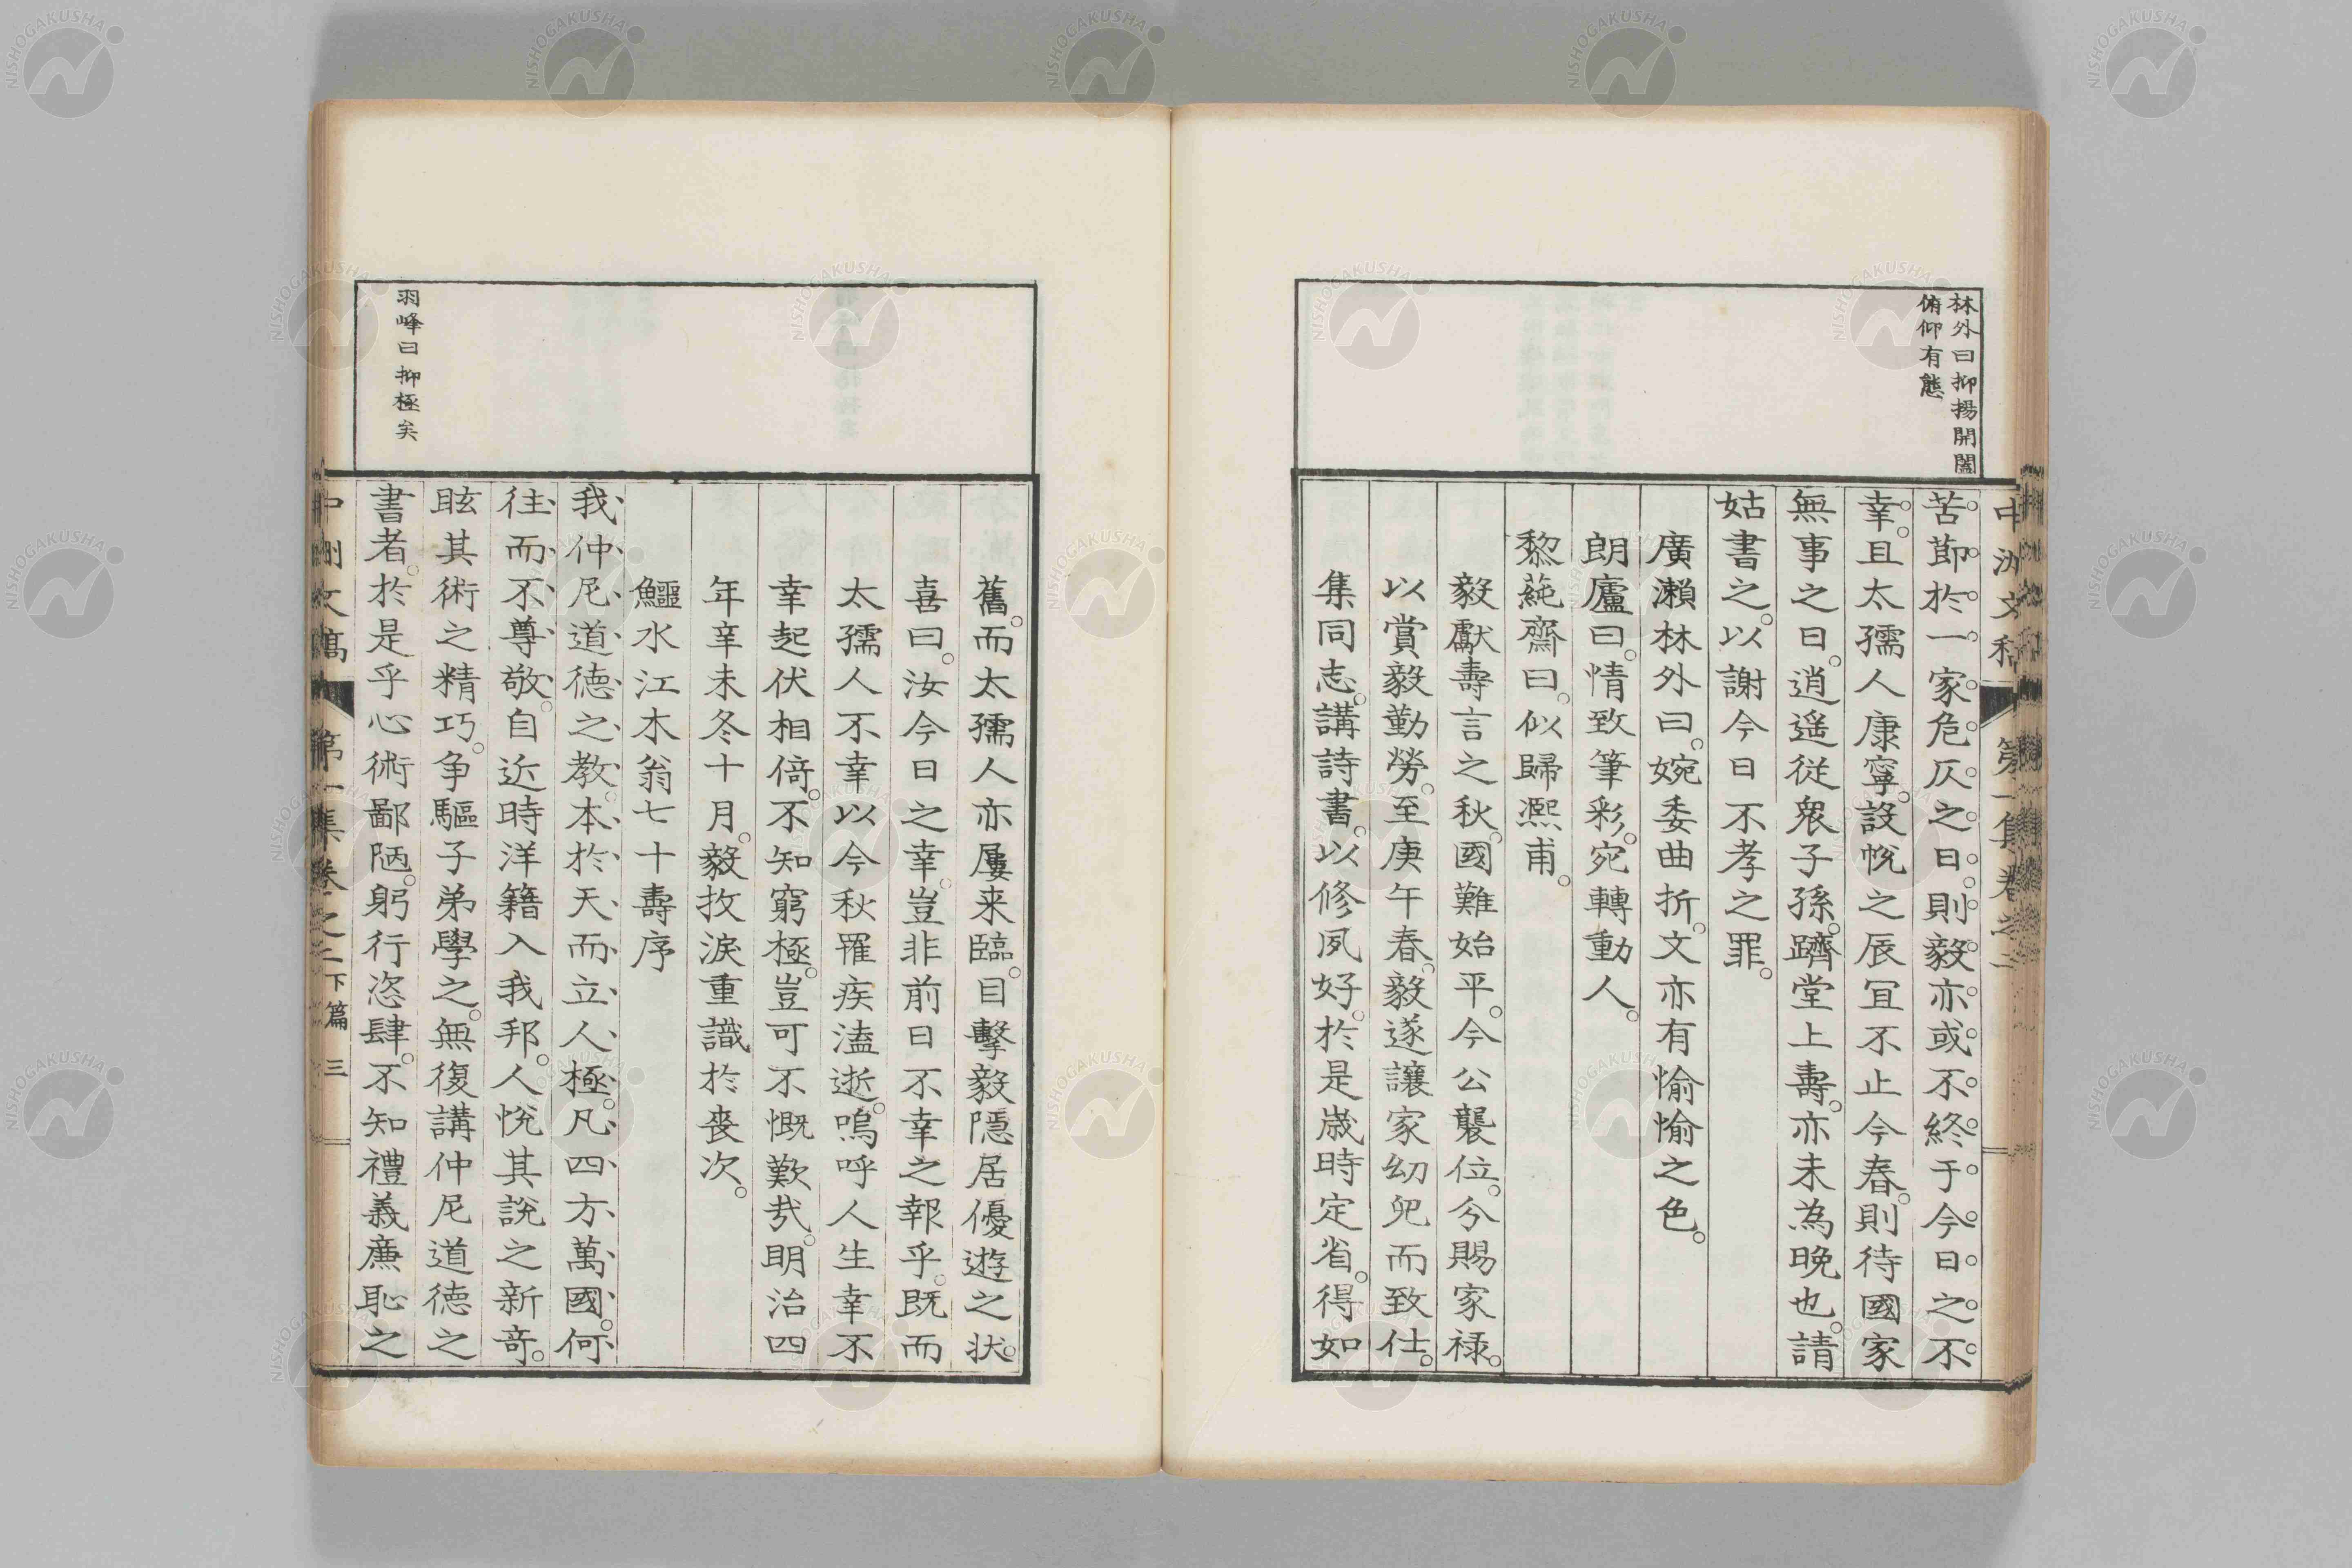 林外曰抑揚開闔
俯仰有態
苦節於一家危仄之日則毅亦或不終于今日之不
幸且太孺人康寧設帨之辰宜不止今春則待國家
無事之日逍遥從衆子孫躋堂上壽亦未為晩也請
姑書之以謝今日不孝之罪
廣瀬林外曰婉委曲折文亦有愉愉之色
朗廬曰情致筆彩宛轉動人
黎蒓齋曰似歸熙甫
毅獻壽言之秋國難始平今公襲位分賜家禄
以賞毅勤勞至庚午春毅遂讓家幼兒而致仕
集同志講詩書以修夙好於是歳時定省得如
舊而太孺人亦屢来臨目擊毅隱居優遊之状
喜曰汝今日之幸豈非前日不幸之報乎既而
太孺人不幸以今秋罹疾溘逝嗚呼人生幸不
幸起伏相倚不知窮極豈可不慨歎哉明治四
年辛未冬十月毅抆淚重識於喪次
鱷水江木翁七十壽序
我仲尼道德之教本於天而立人極凡四方萬國何
往而不尊敬自近時洋籍入我邦人悅其說之新奇
眩其術之精巧争驅子弟學之無復講仲尼道徳之
書者於是乎心術鄙陋躬行恣肆不知禮義廉恥之
羽峰曰抑極矣
中洲文稿 第一集卷之二下篇 三